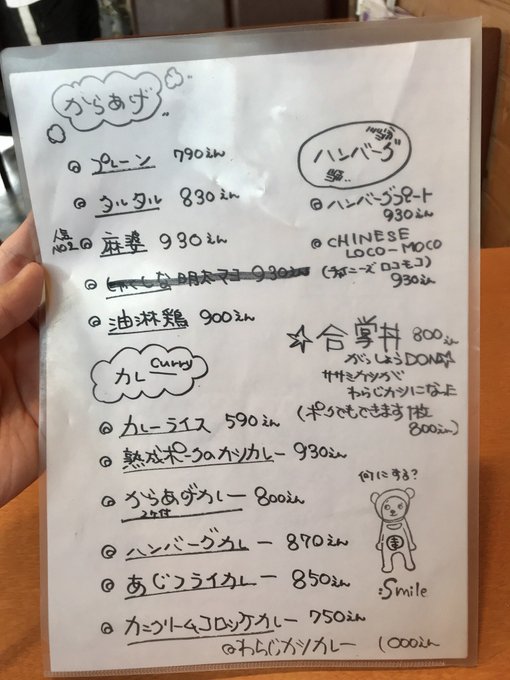 からあげ
プレーン 790えん
タルタル 830えん
人気
No.2 麻婆 930えん
明太マヨ 930えん
油淋鶏 900えん
ハンバーグ
ハンバーグプレート
930えん
CHINESE
LOCO-MOCO
(チャイニーズロコモコ)
930えん
☆合掌丼 800えん
がっしょうDON☆
ササミカツが
わらじカツになった
(ポークでもできます1枚
800えん)
カレー Curry
カレーライス 590えん
熟成ポークのカツカレー 930えん
からあげカレー 800えん
2ケ付
ハンバーグカレー 870えん
あじフライカレー 850えん
カニクリームコロッケカレー 750えん
わらじカツカレー 1,000えん
何にする?
:Smile